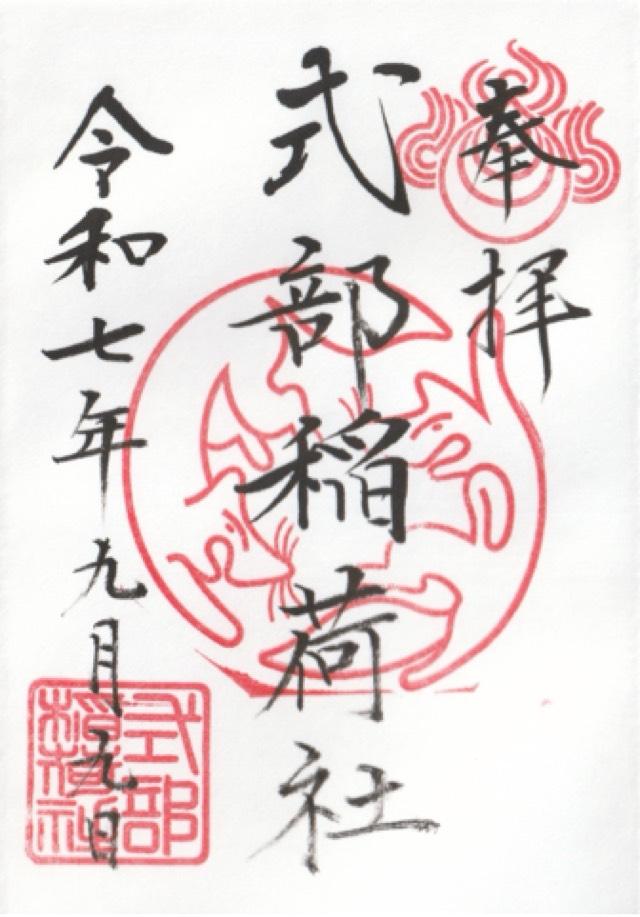 奉拝
式部稲荷社
令和七年九月九日
式部
稲荷社